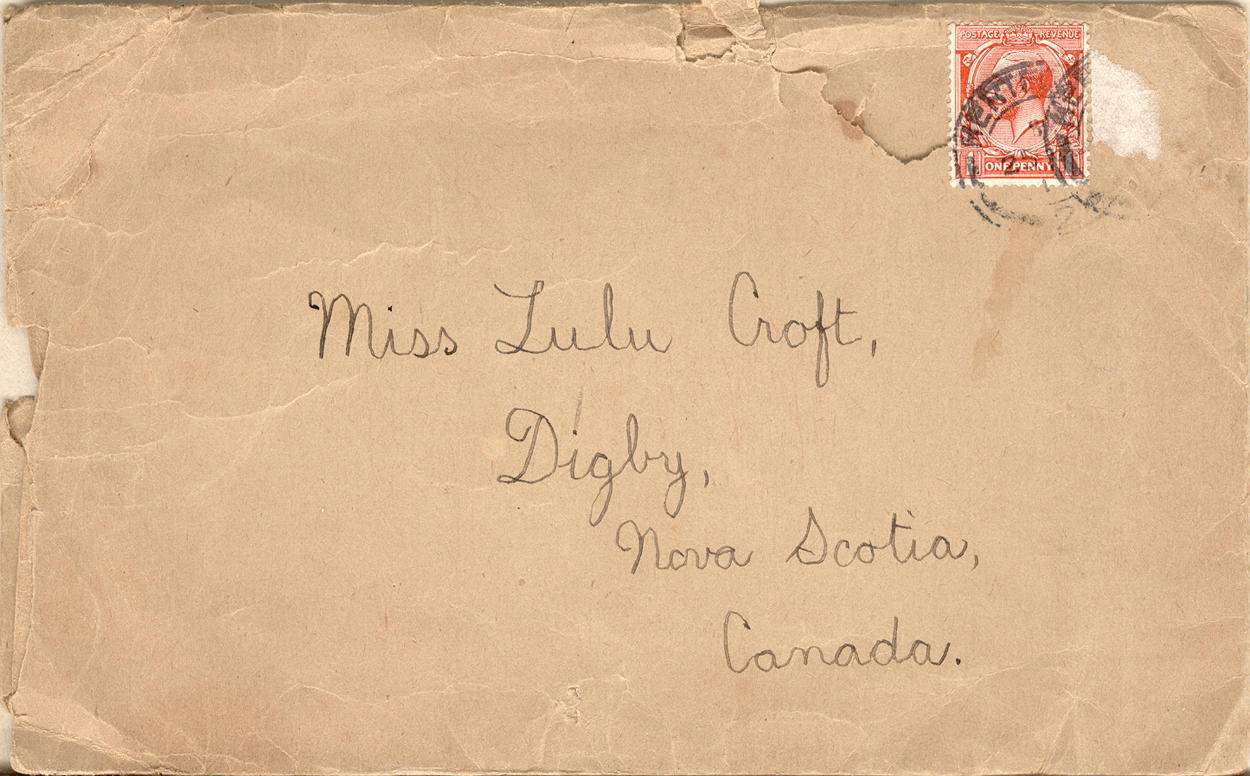 POSTAGE REVENUE
1 ONE PENNY 1
Miss Lulu Croft,
Digby,
Nova Scotia,
Canada.